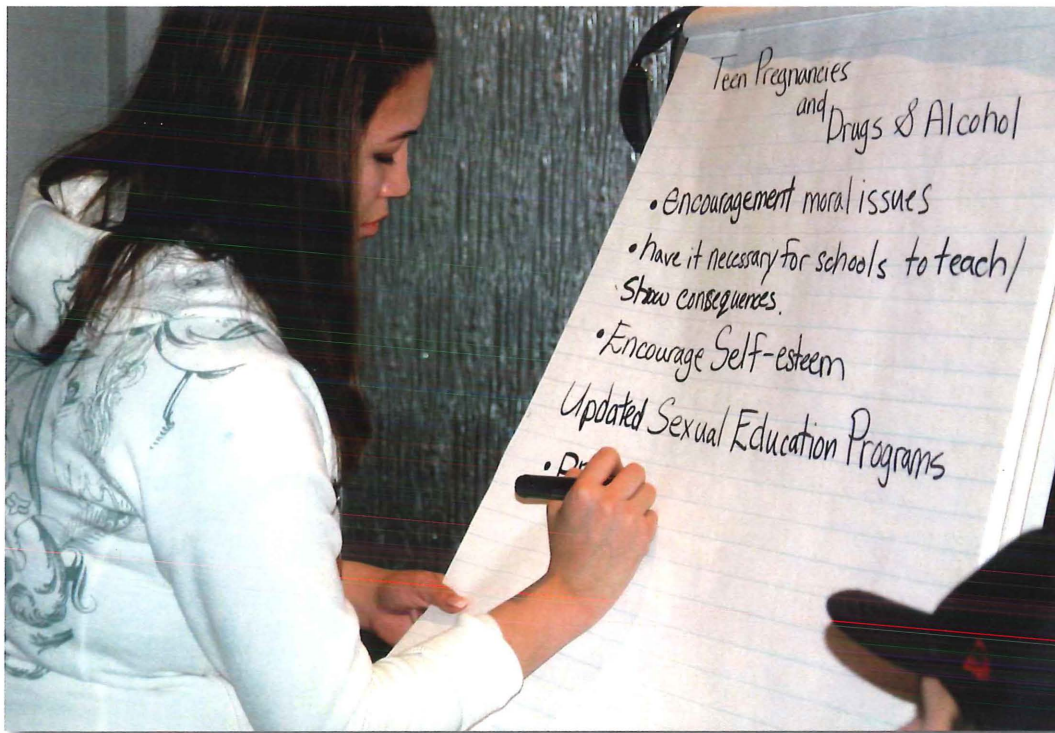 Teen Pregnancies
and Drugs & Alcohol
• encouragement moral issues
• have it necessary for schools to teach/
show consequences.
• Encourage Self-esteem
Updated Sexual Education Programs
•